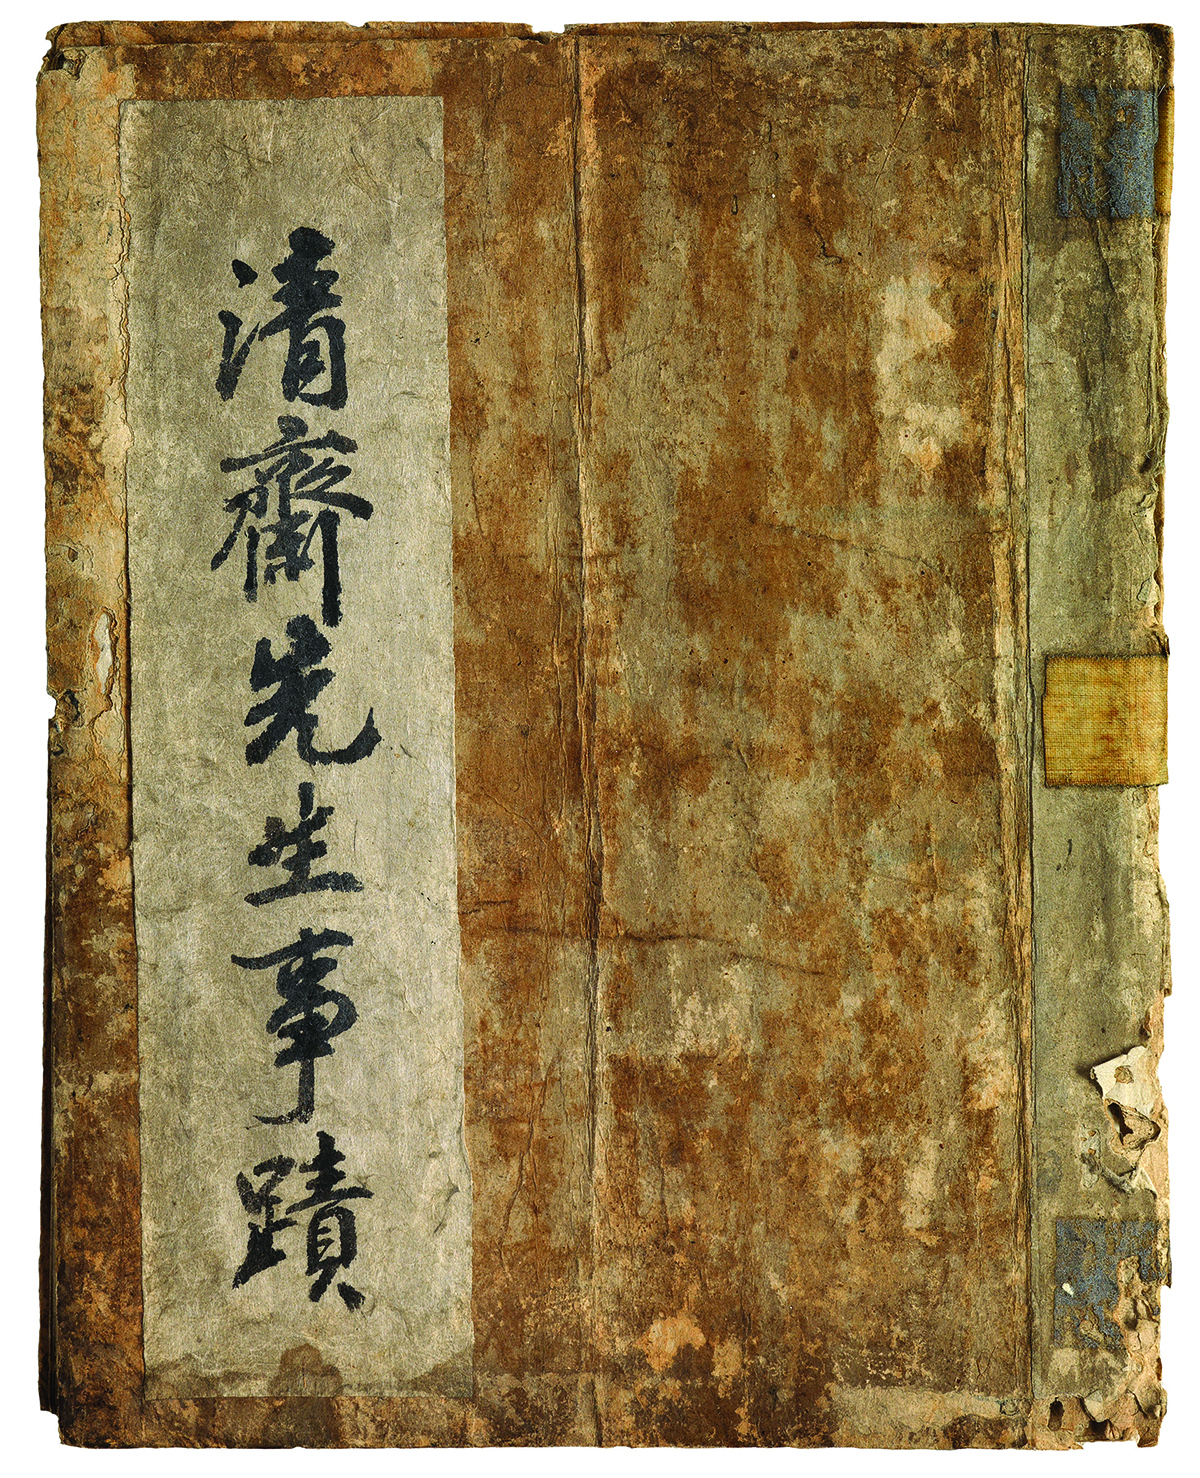 清齋先生事蹟